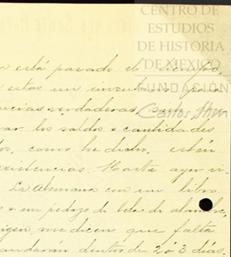 CENTRO DE
ESTUDIOS
DE HISTORIA
DE MEXICO
FUNDACIÓN
Carlos Slim
está pasado de
estos un
verdaderas
los saldos o cantidades
como he dicho. están
existencias. Hasta ayer
La Alemana con un libro
un pedazo de tela de alambre,
me dicen que falta
mandarán dentro de 2 ó 3 días.